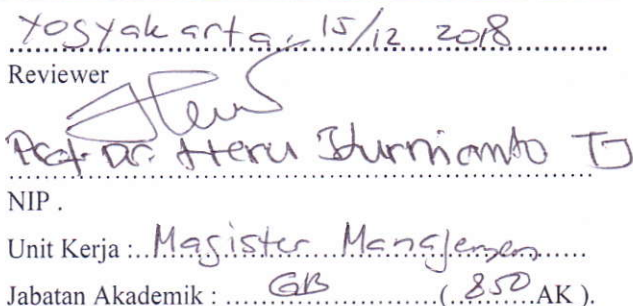 Yogyakarta, 15/12 2018
Reviewer
Prof. Dr. Heru Kurnianto Tj
NIP .
Unit Kerja : Magister Manajemen
Jabatan Akademik : GB ( 850 AK )